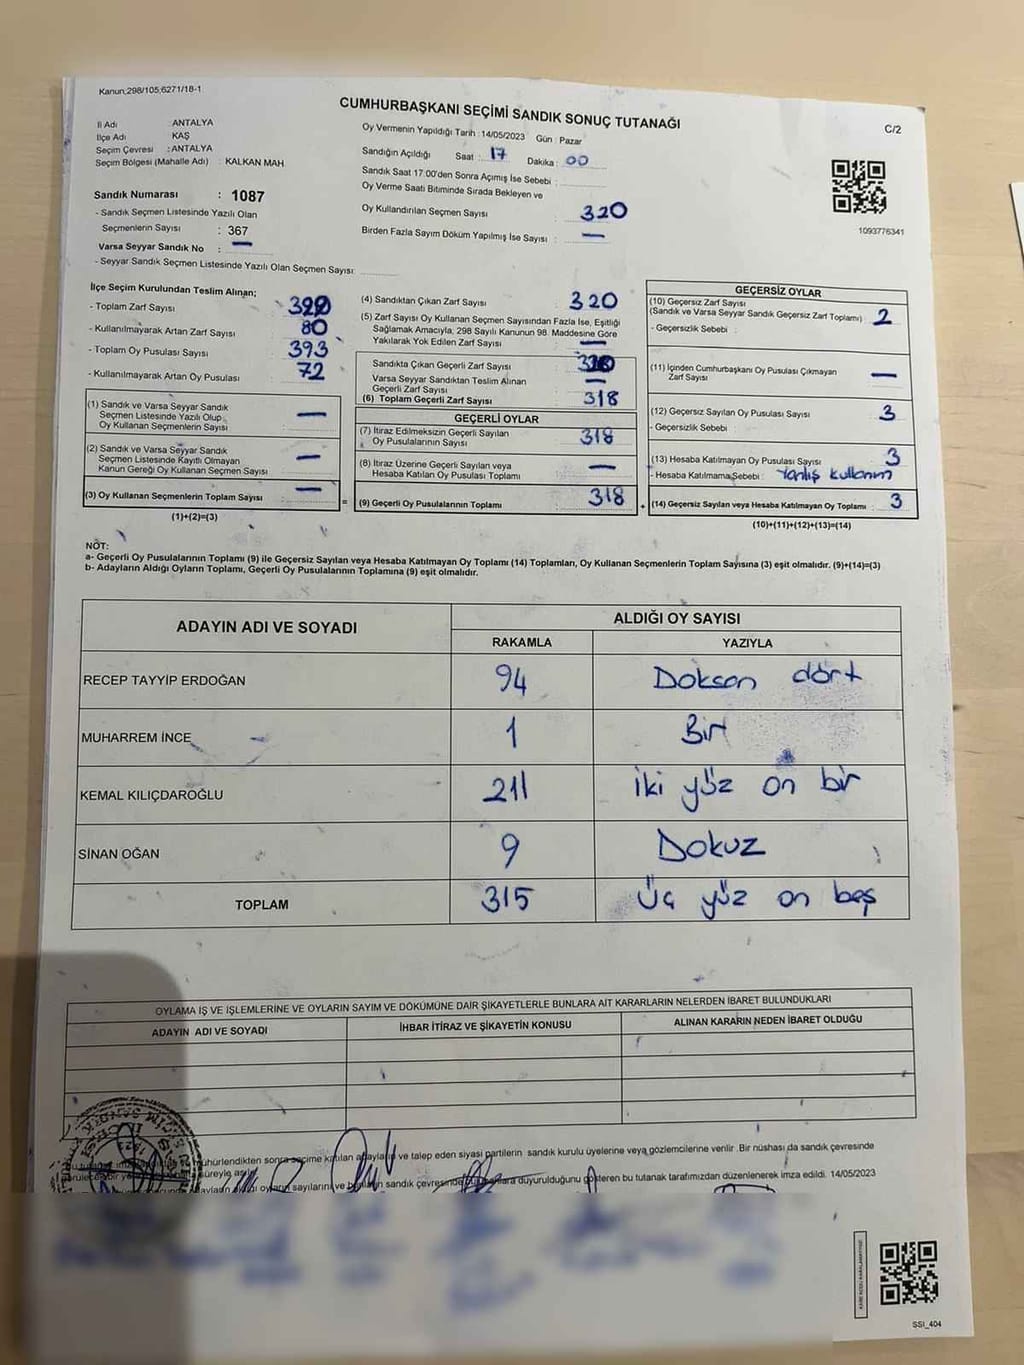 Kanun;298/105;6271/18-1
CUMHURBAŞKANI SEÇİMİ SANDIK SONUÇ TUTANAĞI
C/2
İl Adı ANTALYA
İlçe Adı KAŞ
Seçim Çevresi : ANTALYA
Seçim Bölgesi (Mahalle Adı) : KALKAN MAH.
Sandık Numarası : 1087
- Sandık Seçmen Listesinde Yazılı Olan
Seçmenlerin Sayısı : 367
Varsa Seyyar Sandık No : —
- Seyyar Sandık Seçmen Listesinde Yazılı Olan Seçmen Sayısı:
Oy Vermenin Yapıldığı Tarih : 14/05/2023 Gün : Pazar
Sandığın Açıldığı Saat : 17 Dakika : 00
Sandık Saat 17:00'den Sonra Açımış İse Sebebi :
Oy Verme Saati Bitiminde Sırada Bekleyen ve
Oy Kullandırılan Seçmen Sayısı 320
Birden Fazla Sayım Döküm Yapılmış İse Sayısı : —
1093776341
İlçe Seçim Kurulundan Teslim Alınan;
- Toplam Zarf Sayısı
- Kullanılmayarak Artan Zarf Sayısı 80
- Toplam Oy Pusulası Sayısı 393
- Kullanılmayarak Artan Oy Pusulası 72
(1) Sandık ve Varsa Seyyar Sandık
Seçmen Listesinde Yazılı Olup
Oy Kullanan Seçmenlerin Sayısı : —
(2) Sandık ve Varsa Seyyar Sandık
Seçmen Listesinde Kayıtlı Olmayan
Kanun Gereği Oy Kullanan Seçmen Sayısı : —
(3) Oy Kullanan Seçmenlerin Toplam Sayısı : —
(1)+(2)=(3)
=
(4) Sandıktan Çıkan Zarf Sayısı : 320
(5) Zarf Sayısı Oy Kullanan Seçmen Sayısından Fazla İse, Eşitliği
Sağlamak Amacıyla, 298 Sayılı Kanunun 98. Maddesine Göre
Yakılarak Yok Edilen Zarf Sayısı : —
Sandıkta Çıkan Geçerli Zarf Sayısı :
Varsa Seyyar Sandıktan Teslim Alınan
Geçerli Zarf Sayısı : —
(6) Toplam Geçerli Zarf Sayısı : 318
GEÇERLİ OYLAR
(7) İtiraz Edilmeksizin Geçerli Sayılan
Oy Pusulalarının Sayısı : 318
(8) İtiraz Üzerine Geçerli Sayılan veya
Hesaba Katılan Oy Pusulası Toplamı : —
(9) Geçerli Oy Pusulalarının Toplamı : 318
+
GEÇERSİZ OYLAR
(10) Geçersiz Zarf Sayısı
(Sandık ve Varsa Seyyar Sandık Geçersiz Zarf Toplamı) : 2
- Geçersizlik Sebebi :
(11) İçinden Cumhurbaşkanı Oy Pusulası Çıkmayan
Zarf Sayısı : —
(12) Geçersiz Sayılan Oy Pusulası Sayısı : 3
- Geçersizlik Sebebi :
(13) Hesaba Katılmayan Oy Pusulası Sayısı : 3
- Hesaba Katılmama Sebebi : Yanlış kullanım
(14) Geçersiz Sayılan veya Hesaba Katılmayan Oy Toplamı : 3
(10)+(11)+(12)+(13)=(14)
NOT:
a- Geçerli Oy Pusulalarının Toplamı (9) ile Geçersiz Sayılan veya Hesaba Katılmayan Oy Toplamı (14) Toplamları, Oy Kullanan Seçmenlerin Toplam Sayısına (3) eşit olmalıdır. (9)+(14)=(3)
b- Adayların Aldığı Oyların Toplamı, Geçerli Oy Pusulalarının Toplamına (9) eşit olmalıdır.
ADAYIN ADI VE SOYADI ALDIĞI OY SAYISI
RAKAMLA YAZIYLA
RECEP TAYYİP ERDOĞAN 94 Doksan dört
MUHARREM İNCE 1 Bir
KEMAL KILIÇDAROĞLU 211 iki yüz on bir
SİNAN OĞAN 9 Dokuz
TOPLAM 315 Üç yüz on beş
OYLAMA İŞ VE İŞLEMLERİNE VE OYLARIN SAYIM VE DÖKÜMÜNE DAİR ŞİKAYETLERLE BUNLARA AİT KARARLARIN NELERDEN İBARET BULUNDUKLARI
ADAYIN ADI VE SOYADI İHBAR İTİRAZ VE ŞİKAYETİN KONUSU ALINAN KARARIN NEDEN İBARET OLDUĞU
mühürlendikten sonra seçime katılan adayların ve talep eden siyasi partilerin sandık kurulu üyelerine veya gözlemcilerine verilir. Bir nüshası da sandık çevresinde
süreyle
oyların sayılarını ve sandık çevresinde duyurulduğunu gösteren bu tutanak tarafımızdan düzenlenerek imza edildi. 14/05/2023
SSI_404